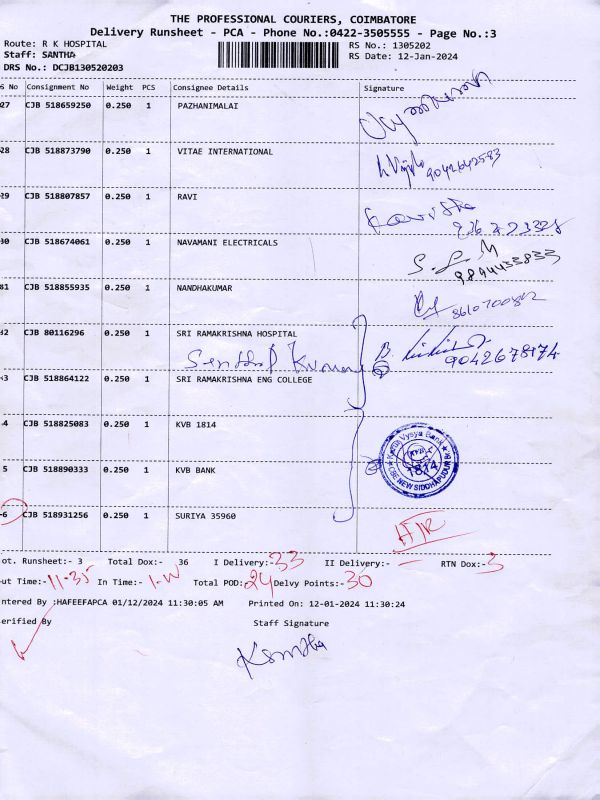 THE PROFESSIONAL COURIERS, COIMBATORE
Delivery Runsheet - PCA - Phone No.:0422-3505555 - Page No.:3
Route: R K HOSPITAL RS No.: 1305202
Staff: SANTHA RS Date: 12-Jan-2024
DRS No.: DCJB130520203
S No Consignment No Weight PCS Consignee Details Signature
27 CJB 518659250 0.250 1 PAZHANIMALAI
28 CJB 518873790 0.250 1 VITAE INTERNATIONAL
9042642583
29 CJB 518807857 0.250 1 RAVI
30 CJB 518674061 0.250 1 NAVAMANI ELECTRICALS
9894433833
31 CJB 518855935 0.250 1 NANDHAKUMAR
32 CJB 80116296 0.250 1 SRI RAMAKRISHNA HOSPITAL
Senthil Kumar 9042678174
33 CJB 518864122 0.250 1 SRI RAMAKRISHNA ENG COLLEGE
4 CJB 518825083 0.250 1 KVB 1814
Karur Vysya Bank
1814
CBE NEW SIDDHAPUDUR BR
5 CJB 518890333 0.250 1 KVB BANK
6 CJB 518931256 0.250 1 SURIYA 35960
ot. Runsheet:- 3 Total Dox:- 36 I Delivery:-33 II Delivery:- — RTN Dox:-3
ut Time:-11-35 In Time:- Total POD:24 Delvy Points:-30
ntered By :HAFEEFAPCA 01/12/2024 11:30:05 AM Printed On: 12-01-2024 11:30:24
erified By Staff Signature